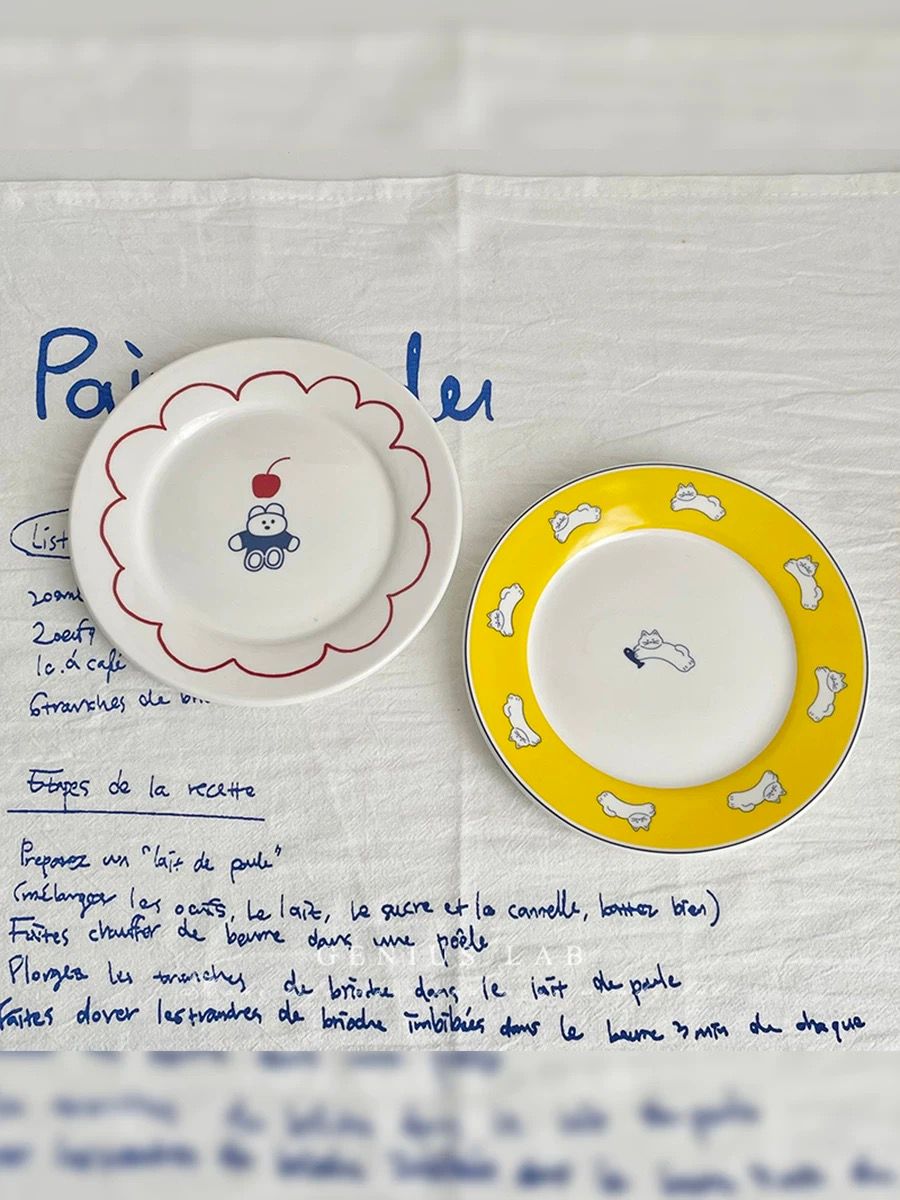 Pai
List
2 oeufs
1c. à café
6 tranches de bri
Etapes de la recette
Preparez un "lait de poule"
(mélanger les oeufs, le lait, le sucre et la cannelle, battez bien)
Faites chauffer de beurre dans une poêle
GENIUS LAB
Plongez les tranches de brioche dans le lait de poule
Faites dorer les tranches de brioche imbibées dans le beurre 3 min de chaque